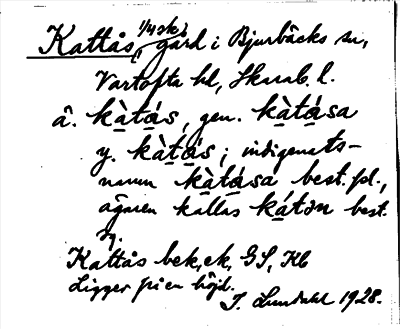 Kattås, 1/4 sk, gård i Bjurbäcks sn,
Vartofta hd, Skarab. l.
å. kàtás, gen. kàtása
y. kàtás; indigenats-
namn kàtása best. pl.,
ägaren kallas kátən best.
sg.
Kattås bek, ek, GS, Kb
Ligger på en höjd.
I. Lundahl 1928.